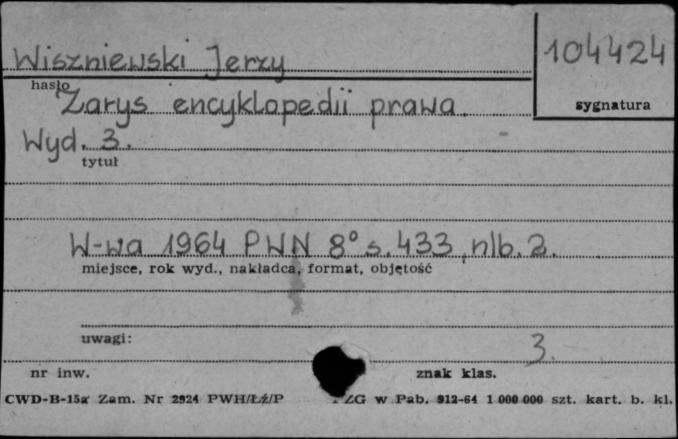 Wiszniewski Jerzy
104424
hasło
sygnatura
Zarys encyklopedii prawa.
Wyd. 3.
tytuł
W-wa 1964 PWN 8° s. 433, nlb. 2.
miejsce, rok wyd., nakładca, format, objętość
uwagi:
3.
nr inw.
znak klas.
CWD-B-15a Zam. Nr 2924 PWH/Łź/P ZG w Pab. 912-64 1 000 000 szt. kart. b. kl.